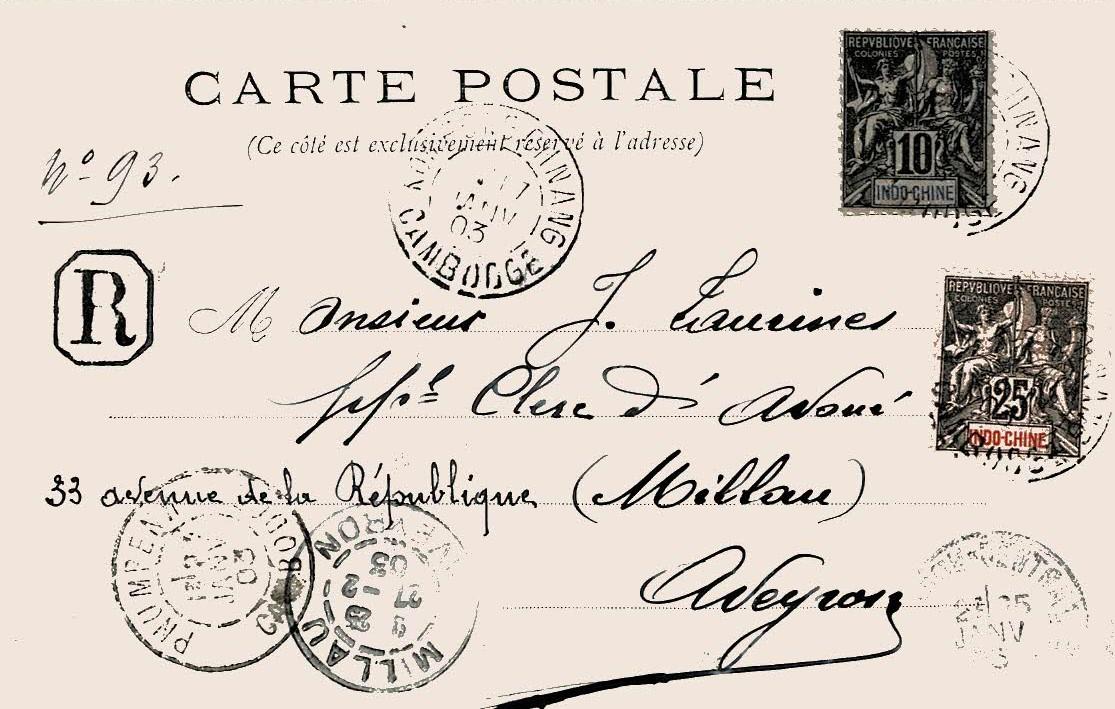 CARTE POSTALE
(Ce côté est exclusivement réservé à l'adresse)
Nº 93.
REPVBLIQVE FRANÇAISE
COLONIES POSTES
10
INDO-CHINE
JANV
03
CAMBODGE
R
REPVBLIQVE FRANÇAISE
COLONIES POSTES
25
INDO-CHINE
Monsieur J. Laurines
Clerc d'Avoué
33 avenue de la République (Millau)
Aveyron
PNUMPENH
JANV
03
CAMBODGE
MILLAU
AVEYRON
27
03
25
JANV